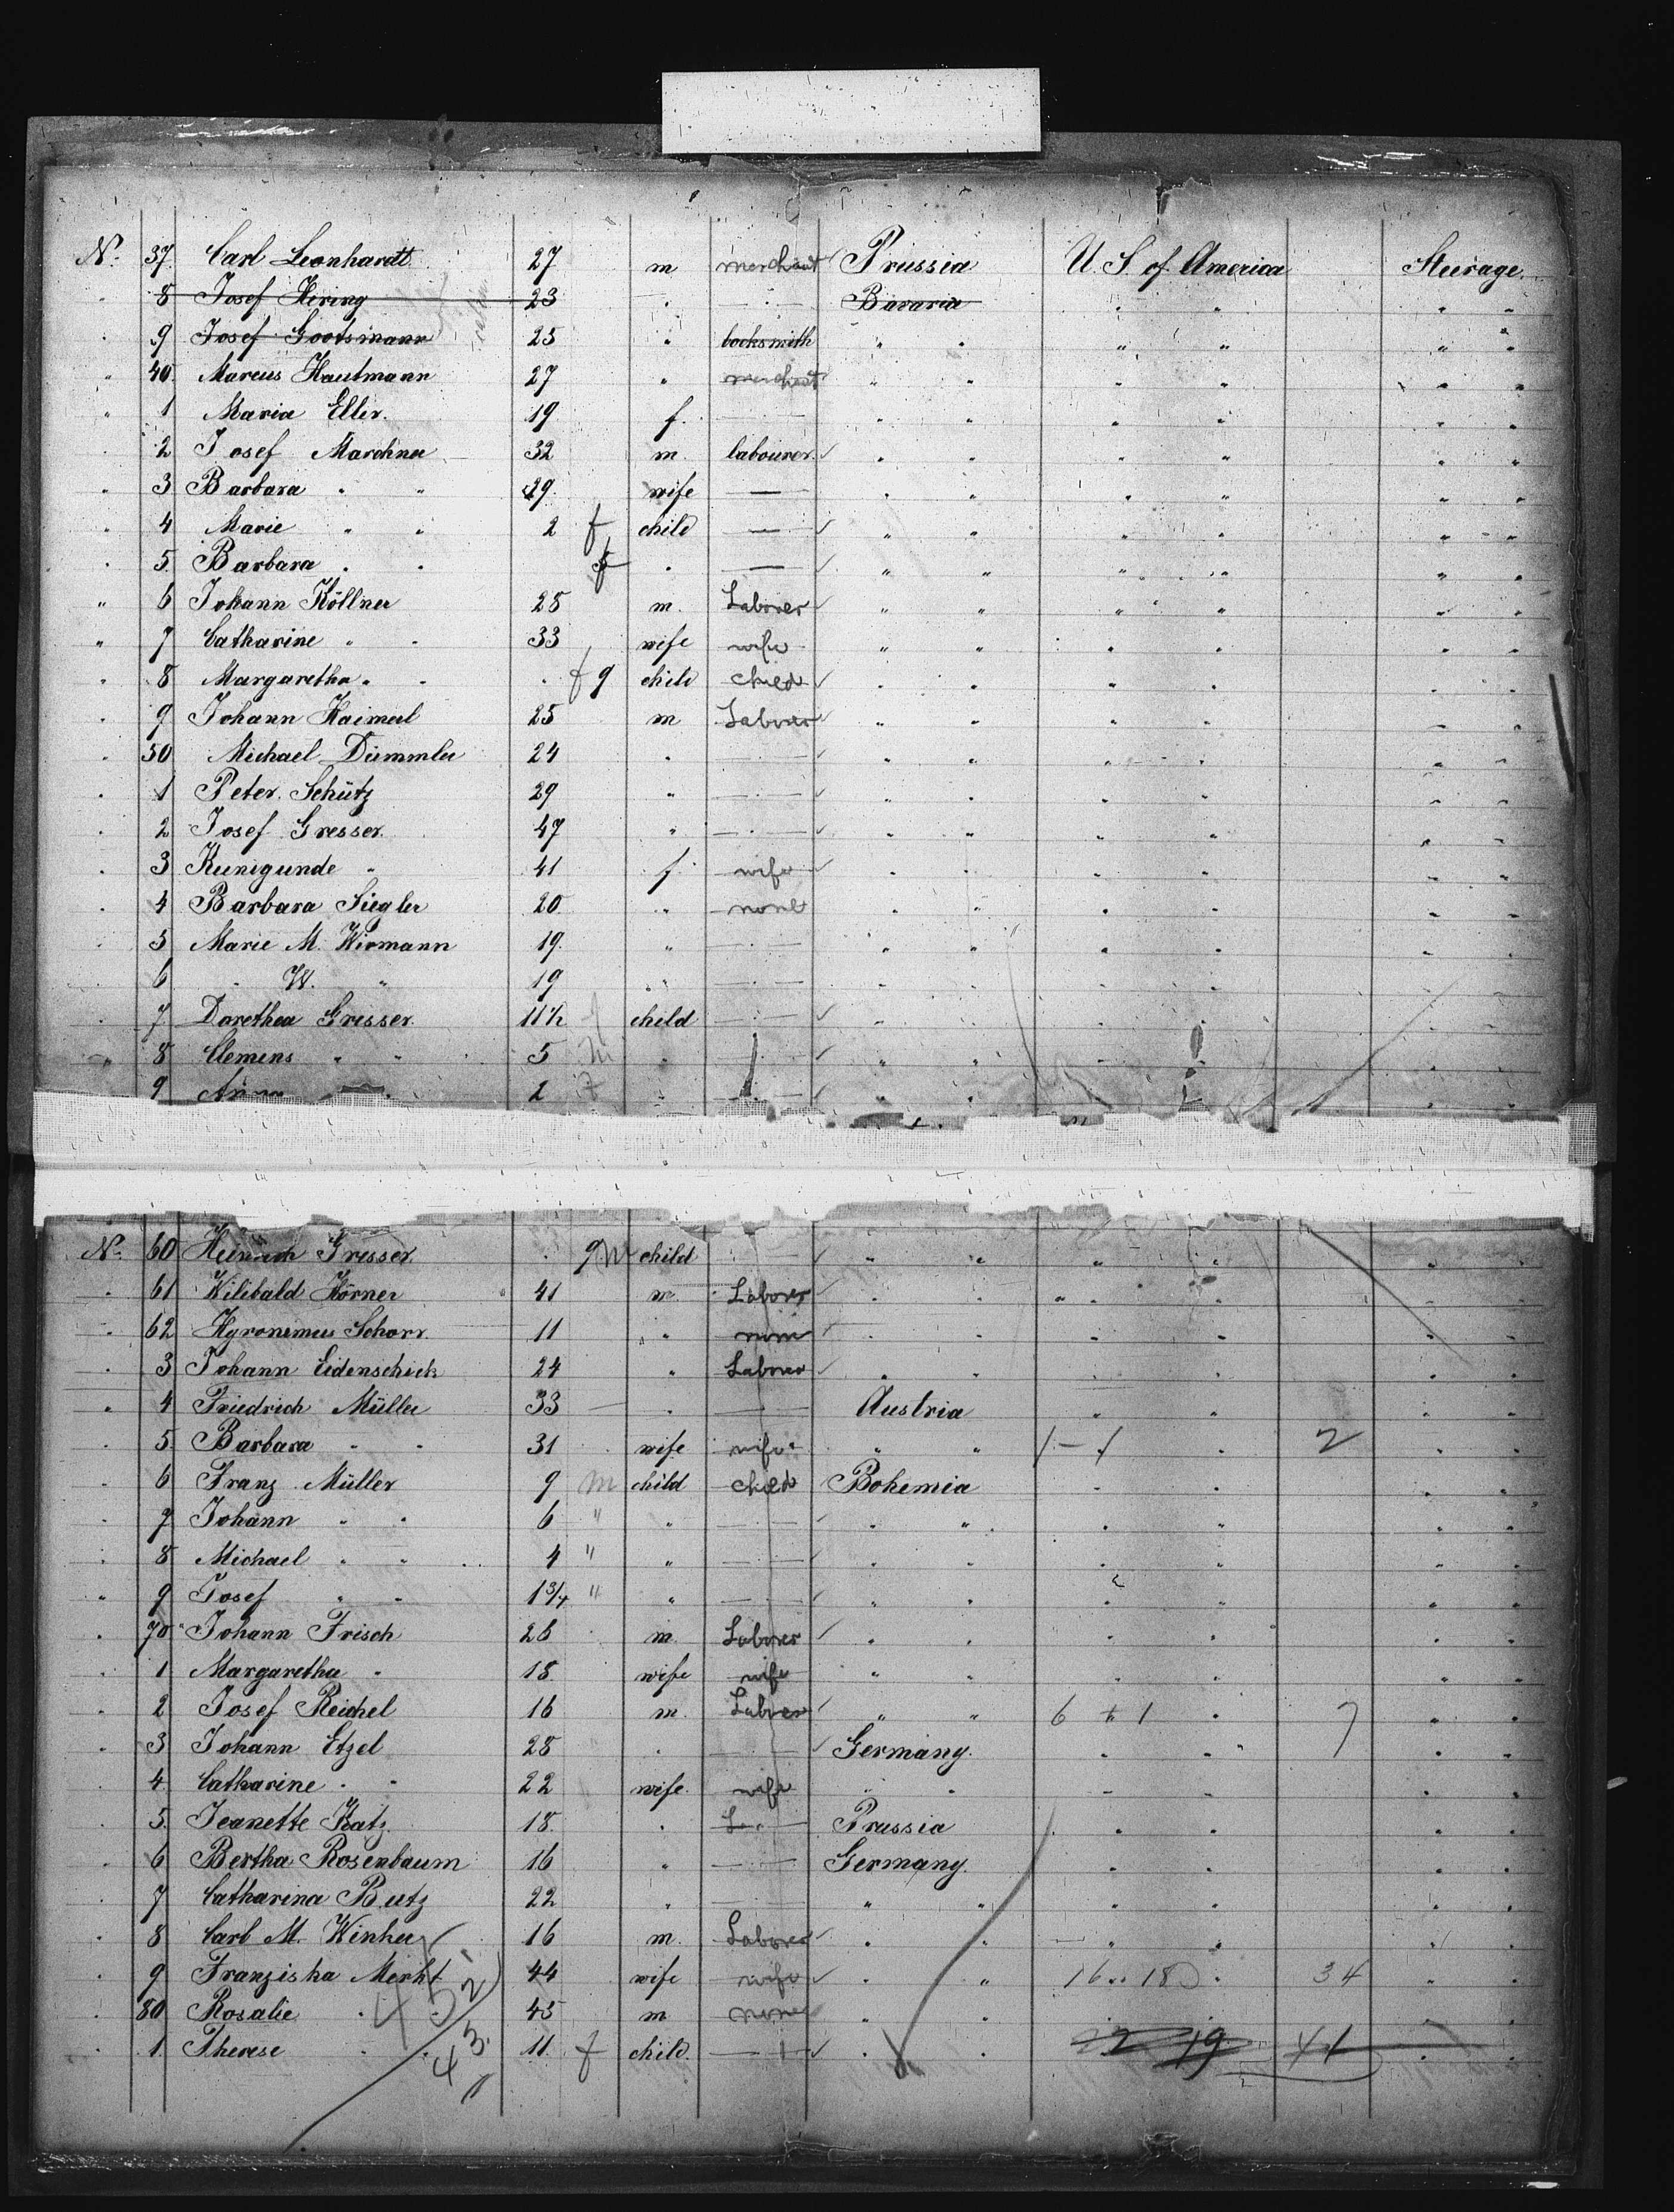 No 37 Carl Leonhardt 27 m merchant Prussia U. S. of America Steerage.
" 8 Josef Hering 23 " — " — Bavaria " " " "
" 9 Josef Gootsmann 25 " locksmith " " " " " "
" 40 Marcus Hautmann 27 " merchant " " " " " "
" 1 Maria Eller. 19 f. — " — " " " " " "
" 2 Josef Marchner 32 m labourer. " " " " " "
" 3 Barbara " " 29 wife — " " " " " "
" 4 Marie " " 2 f child — " " " " " "
" 5 Barbara " " f " — " " " " " "
" 6 Johann Köllner 28 m. Laborer " " " " " "
" 7 Catharine " " 33 wife wife " " " " " "
" 8 Margaretha " " f 9 child child " " " " " "
" 9 Johann Kaimerl 25 m Laborer " " " " " "
" 50 Michael Dümmler 24 " — " — " " " " " "
" 1 Peter Schütz 29 " — " — " " " " " "
" 2 Josef Gresser 47 " — " — " " " " " "
" 3 Kunigunde " 41 f. wife " " " " " "
" 4 Barbara Siegler 20 " none " " " " " "
" 5 Marie M. Wirmann 19. " — " — " " " " " "
" 6 " W. " 19 " — " — " " " " " "
" 7 Darethea Gresser. 11½ f child — " — " " " " " "
" 8 Clemens " " 5 m " " " " " " " "
9 Anna " 2 f " — " — " " " " " "
No 60 Heinrich Gresser. 9 m child " — " " " " " "
" 61 Wilibald Körner 41 m. Laborer " " " " " "
" 62 Hyronimus Schorr. 11 " none " " " " " "
" 3 Johann Eidenschick 24 " Laborer " " " " " "
" 4 Friedrich Müller 33 " — Austria " " " "
" 5 Barbara " " 31 wife wife " " 1 - 1 " 2 " "
" 6 Franz Müller 9 m child child Bohemia " " " "
" 7 Johann " " 6 " " — " — " " " " " "
" 8 Michael " " 4 " " — " — " " " " " "
" 9 Josef " " 1¾ " " — " — " " " " " "
" 70 Johann Frisch 26 m. Laborer " " " " " "
" 1 Margaretha " 18 wife wife " " " " " "
" 2 Josef Reichel 16 m. Laborer " " 6 + 1 " 7 " "
" 3 Johann Etzel 28 " — " — Germany. " " " "
" 4 Catharine " " 22 wife. wife " " " " " "
" 5 Jeanette Katz. 18. " L " Prussia " " " "
" 6 Bertha Rosenbaum 16 " — " — Germany. " " " "
" 7 Catharina Butz 22 " — " " " " " "
" 8 Carl M. Winher 16 m. Laborer " " " " " "
" 9 Franziska Merkt 44 wife wife " " 16 " 18 " 34 " "
" 80 Rosalie " 45 m none " " " "
" 1. Therese " " 11 f child. — " " 2 19 41 " "
452
43